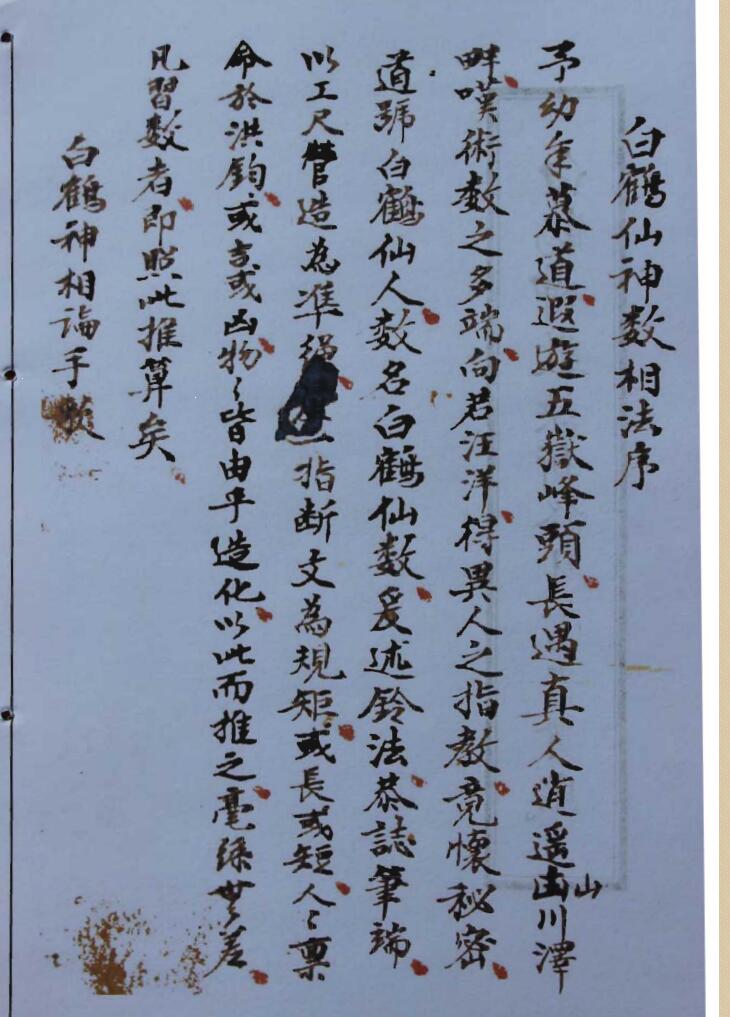 白鶴仙神数相法序
予幼年慕道遐遊五嶽峰頭長遇真人逍遥山川澤
畔嘆術数之多端向若汪洋得異人之指教竟懷秘密
道號白鶴仙人数名白鶴仙数爰述鈴法恭誌筆端
以工尺營造為準繩指断文為規矩或長或短人〻禀
命於洪鈞或吉或凶物〻皆由乎造化以此而推之毫絲世差
凡習数者即照此推算矣
白鶴神相論手